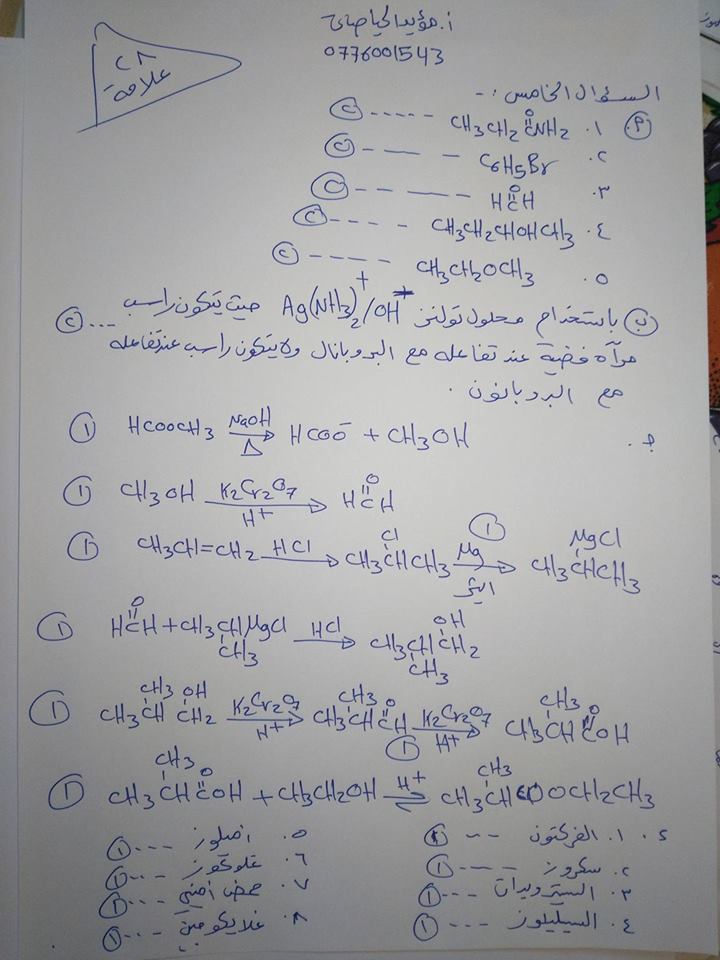 أ. مؤيد الحياصات
0776001543
٢٨
علامة
السؤال الخامس :-
أ ١. CH3CH2CNH2 O ----- ٢
٢. C6H5Br ----- ٢
٣. HCH O ----- ٢
٤. CH3CH2CHOHCH3 ---- ٢
٥. CH3CH2OCH3 --- ٢
ب باستخدام محلول تولنز Ag(NH3)2+/OH- حيث يتكون راسب
مرآة فضية عند تفاعله مع البروبانال ولا يتكون راسب عند تفاعله ... ٢
مع البروبانون .
ج. HCOOCH3 NaOH → Δ HCOO- + CH3OH ١
CH3OH K2Cr2O7 → H+ HCH O ١
CH3CH=CH2 HCl → CH3CHCH3 Cl Mg → ايثر CH3CHCH3 MgCl ١ ١
HCH O + CH3CHMgCl CH3 HCl → CH3CHCH2 OH CH3 ١
CH3CH CH2 CH3 OH K2Cr2O7 → H+ CH3CHCH CH3 O K2Cr2O7 → H+ CH3CHCOH CH3 O ١ ١
CH3CHCOH CH3 O + CH3CH2OH H+ ⇌ CH3CHCOOCH2CH3 CH3 ١
د. ١. الفركتوز --- ١
٢. سكروز ---- ١
٣. الستيرويدات --- ١
٤. السيليلوز --- ١
٥. اميلوز --- ١
٦. غلوكوز --- ١
٧. حمض اميني --- ١
٨. غلايكوجين --- ١